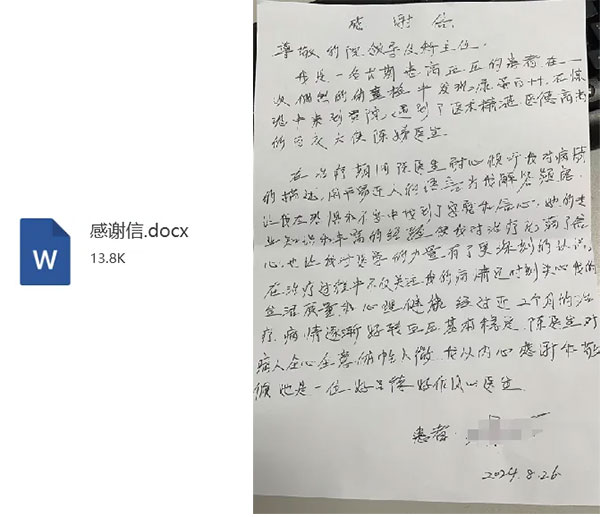 感谢信.docx
13.8K
W
感谢信
尊敬的院领导及科主任.
我是一名长期患高血压的患者在一
次偶然的检查中发现尿蛋白++.在惊
恐中来到贵院,遇到了医术精湛.医德高尚
的白衣天使陈 医生
在治疗期间陈医生耐心倾听我对病情
的描述,用平易近人的语言为我解答疑虑.
让我在恐惧和不安中找到了安慰和信心.她的专
业知识和丰富的经验使我对治疗充满了信
心.也让我对医学的力量有了更深刻的认识.
在治疗过程中不仅关注我的病情还时刻关心我的
生活质量和心理健康 经过近2个月的治
疗.病情逐渐好转血压基本稳定.陈医生对
病人全心全意 入微 我从内心感谢和敬
佩她是一位好品德好作风的医生
患者
2024.8.26